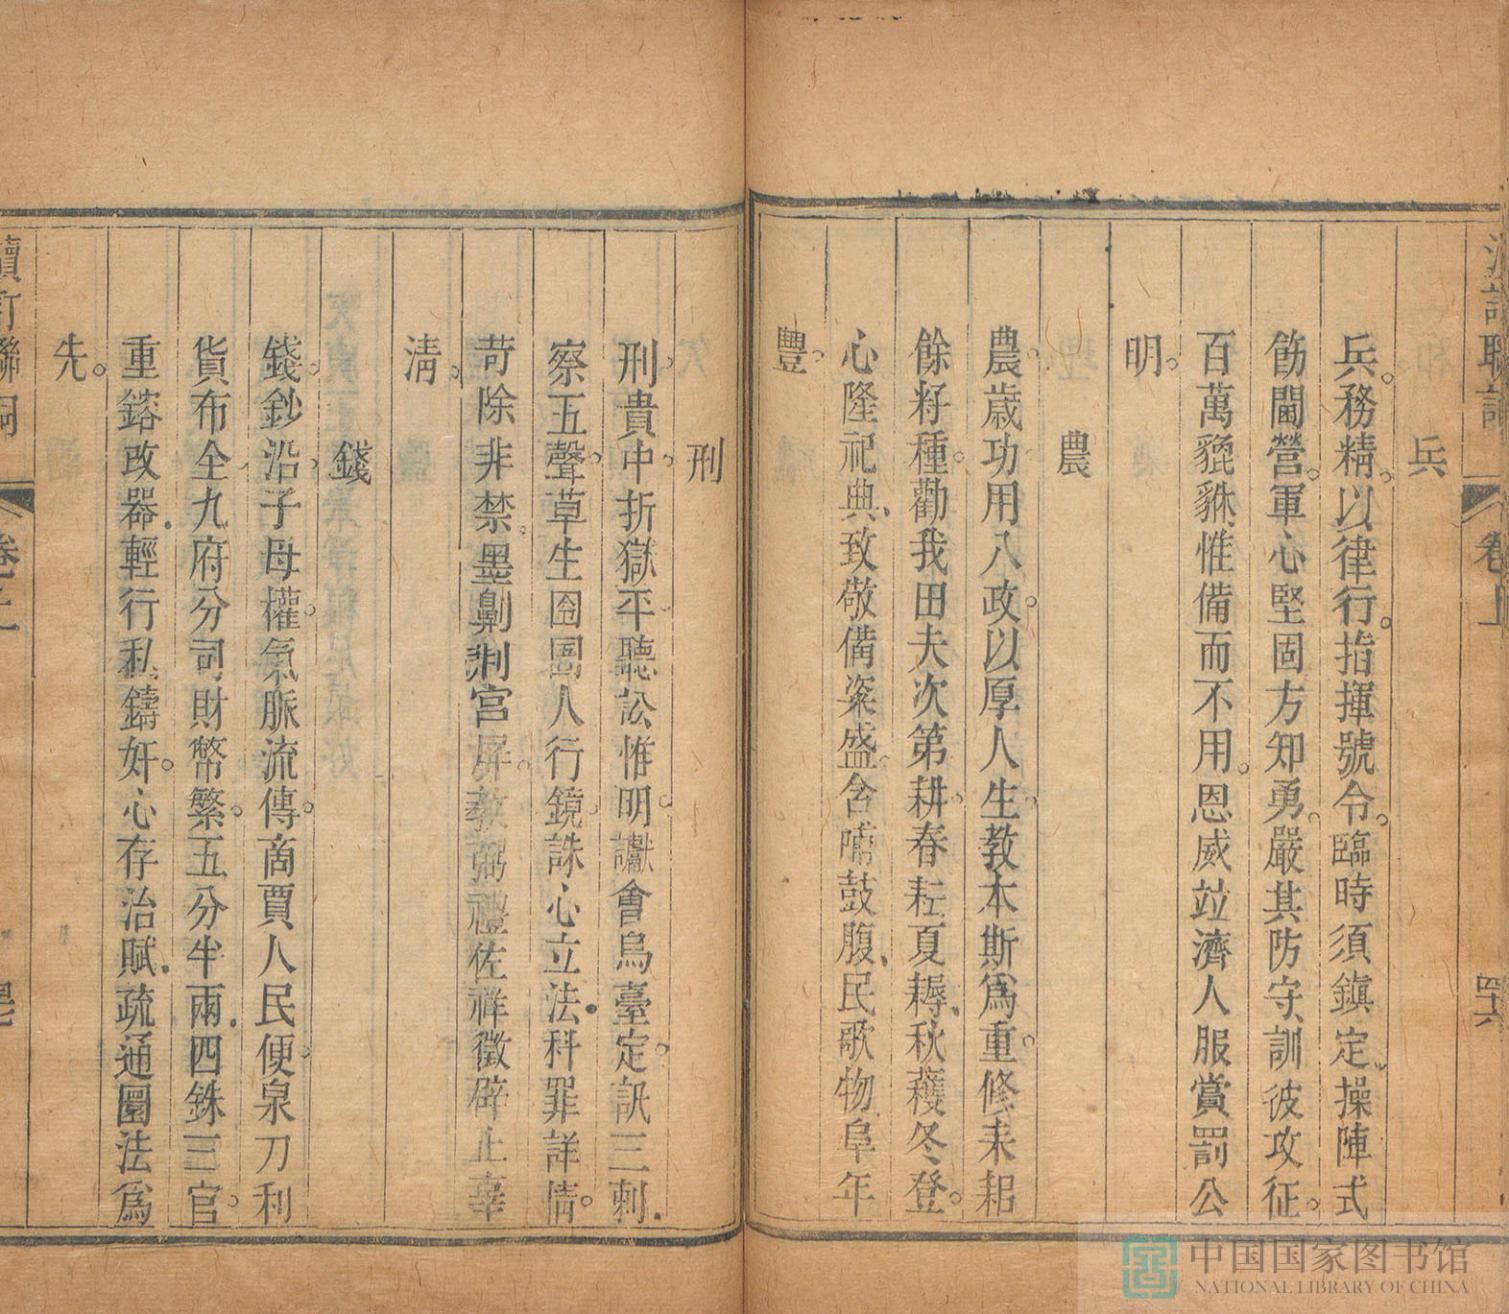 兵
兵務精以律行指揮號令臨時須鎮定操陣式
飭閫營軍心堅固方知勇嚴其防守訓彼攻征
百萬貔貅惟備而不用恩威竝濟人服賞罰公
明
農
農歲功用八政以厚人生教本斯爲重修耒耜
餘籽種勸我田夫次第耕春耘夏耨秋穫冬登
心隆祀典致敬備粢盛含哺鼓腹民歌物阜年
豐
卷上
刑
刑貴中折獄平聽訟惟明讞會烏臺定訊三刺
察五聲草生囹圄人行鏡誅心立法科罪詳情
苛除非禁墨劓剕宮屏教弼禮佐祥徵辟止辜
清
錢
錢鈔沿子母權氣脈流傳商賈人民便泉刀利
貨布全九府分司財幣繁五分半兩四銖三官
重鎔改器輕行私鑄奸心存治賦疏通圜法爲
先
中国国家图书馆
NATIONAL LIBRARY OF CHINA